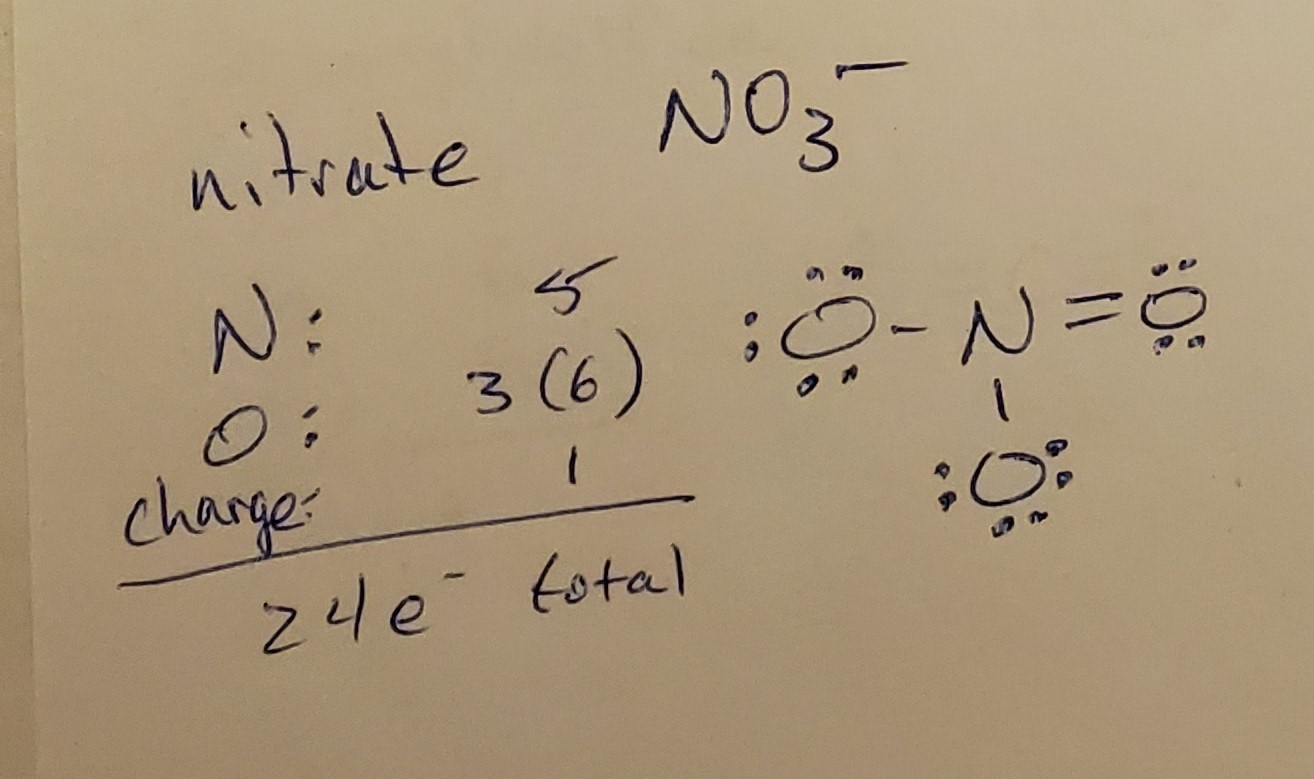 nitrate NO₃⁻
N: 5
O: 3(6)
charge: 1
24e⁻ total
:Ö̤-N=Ö̤
|
:O̤: